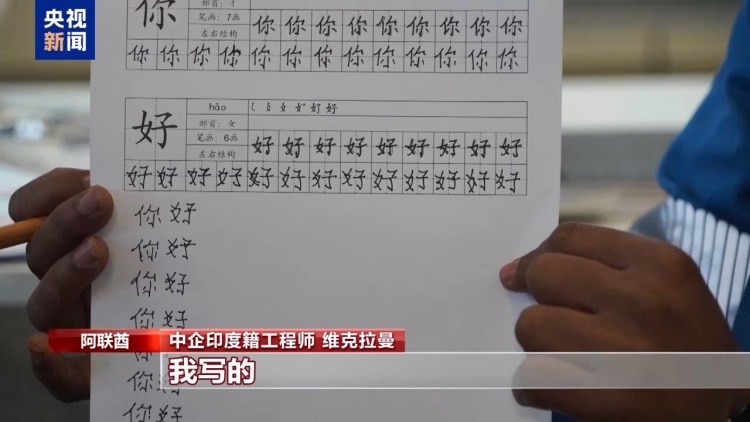 央视
新闻
你
部首：亻
笔画：7画
左右结构
你 你 你 你 你 你 你 你 你
你 你 你 你 你 你 你 你 你 你 你 你 你
好
hǎo
部首：女
笔画：6画
左右结构
好 好 好 好 好 好 好 好 好
好 好 好 好 好 好 好 好 好 好 好 好 好
你好
你好
你好
你好
你
你好
你好
阿联酋
中企印度籍工程师 维克拉曼
我写的